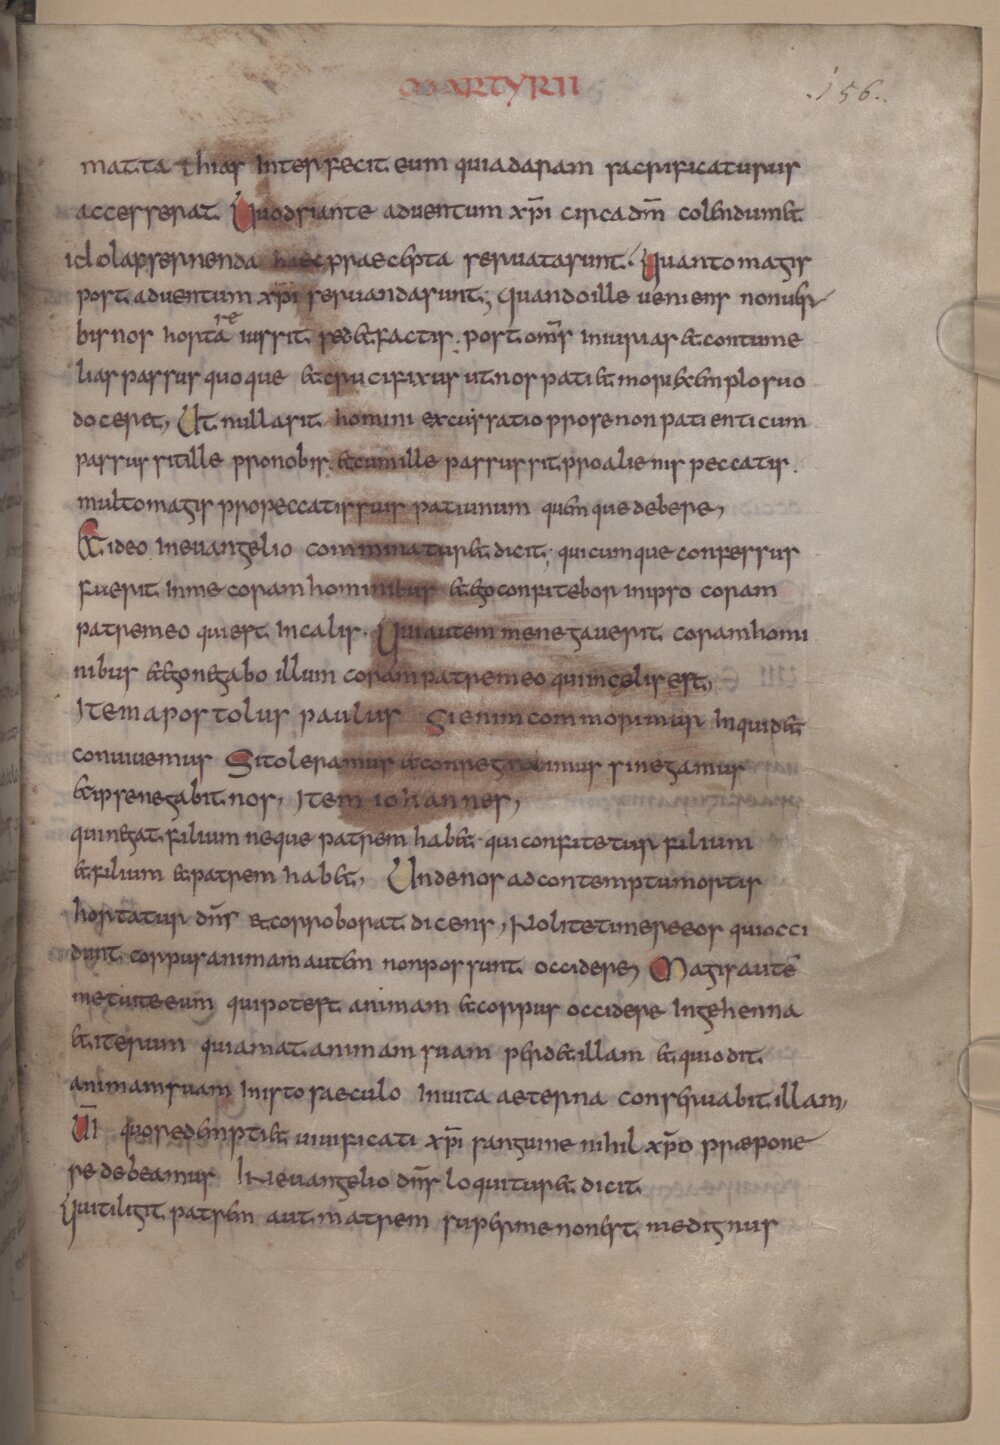 MARTYRII
.156.
matta thias interfecit eum quiadaram sacrificaturus
accesserat. Quodsiante aduentum xp̅i circa dm̅ colendum et
idola spernenda haec praecepta seruata sunt. Quanto magis
post aduentum xp̅i seruanda sunt; Quando ille ueniens non uer
bis nos hortare iussit sed et factis. post om̅s iniurias et contume
lias passus quoque et crucifixus ut nos pati et mori exemplo suo
doceret, Ut nulla sit homini excussatio pro se non patienti cum
passus sit ille pro nobis. et cum ille passus sit pro alienis peccatis.
multo magis pro peccatis suis pati unum quemque debere,
Et ideo in euangelio comminatur et dicit; quicumque confessus
fuerit in me coram hominibus et ego confitebor in ipso coram
patre meo qui est in calis. Qui autem me negauerit coram homi
nibus et ego negabo illum coram patre meo qui in celis est,
Item apostolus paulus Si enim commorimur inquid et
conuiuemus Si toleramus et conregnauimus si negamus
et ipse negabit nos, Item iohannes,
qui negat filium neque patrem habet. qui confitetur filium
et filium et patrem habet, Unde nos ad contemptu mortis
hortatur dn̅s et corroborat dicens, Nolite timere eos qui occi
dunt corpus animam autem non possunt occidere, Magis aute̅
metuite eum qui potest animam et corpus occidere in gehenna
et iterum qui amat animam suam perdet illam et qui odit
animam suam in isto saeculo in uita aeterna conseruabit illam,
VI quos redempti et uiuificati xp̅i sanguine nihil xp̅o praepone
re debeamus In euangelio dn̅s loquitur et dicit
Qui tiligit patrem aut matrem super me non est me dignus